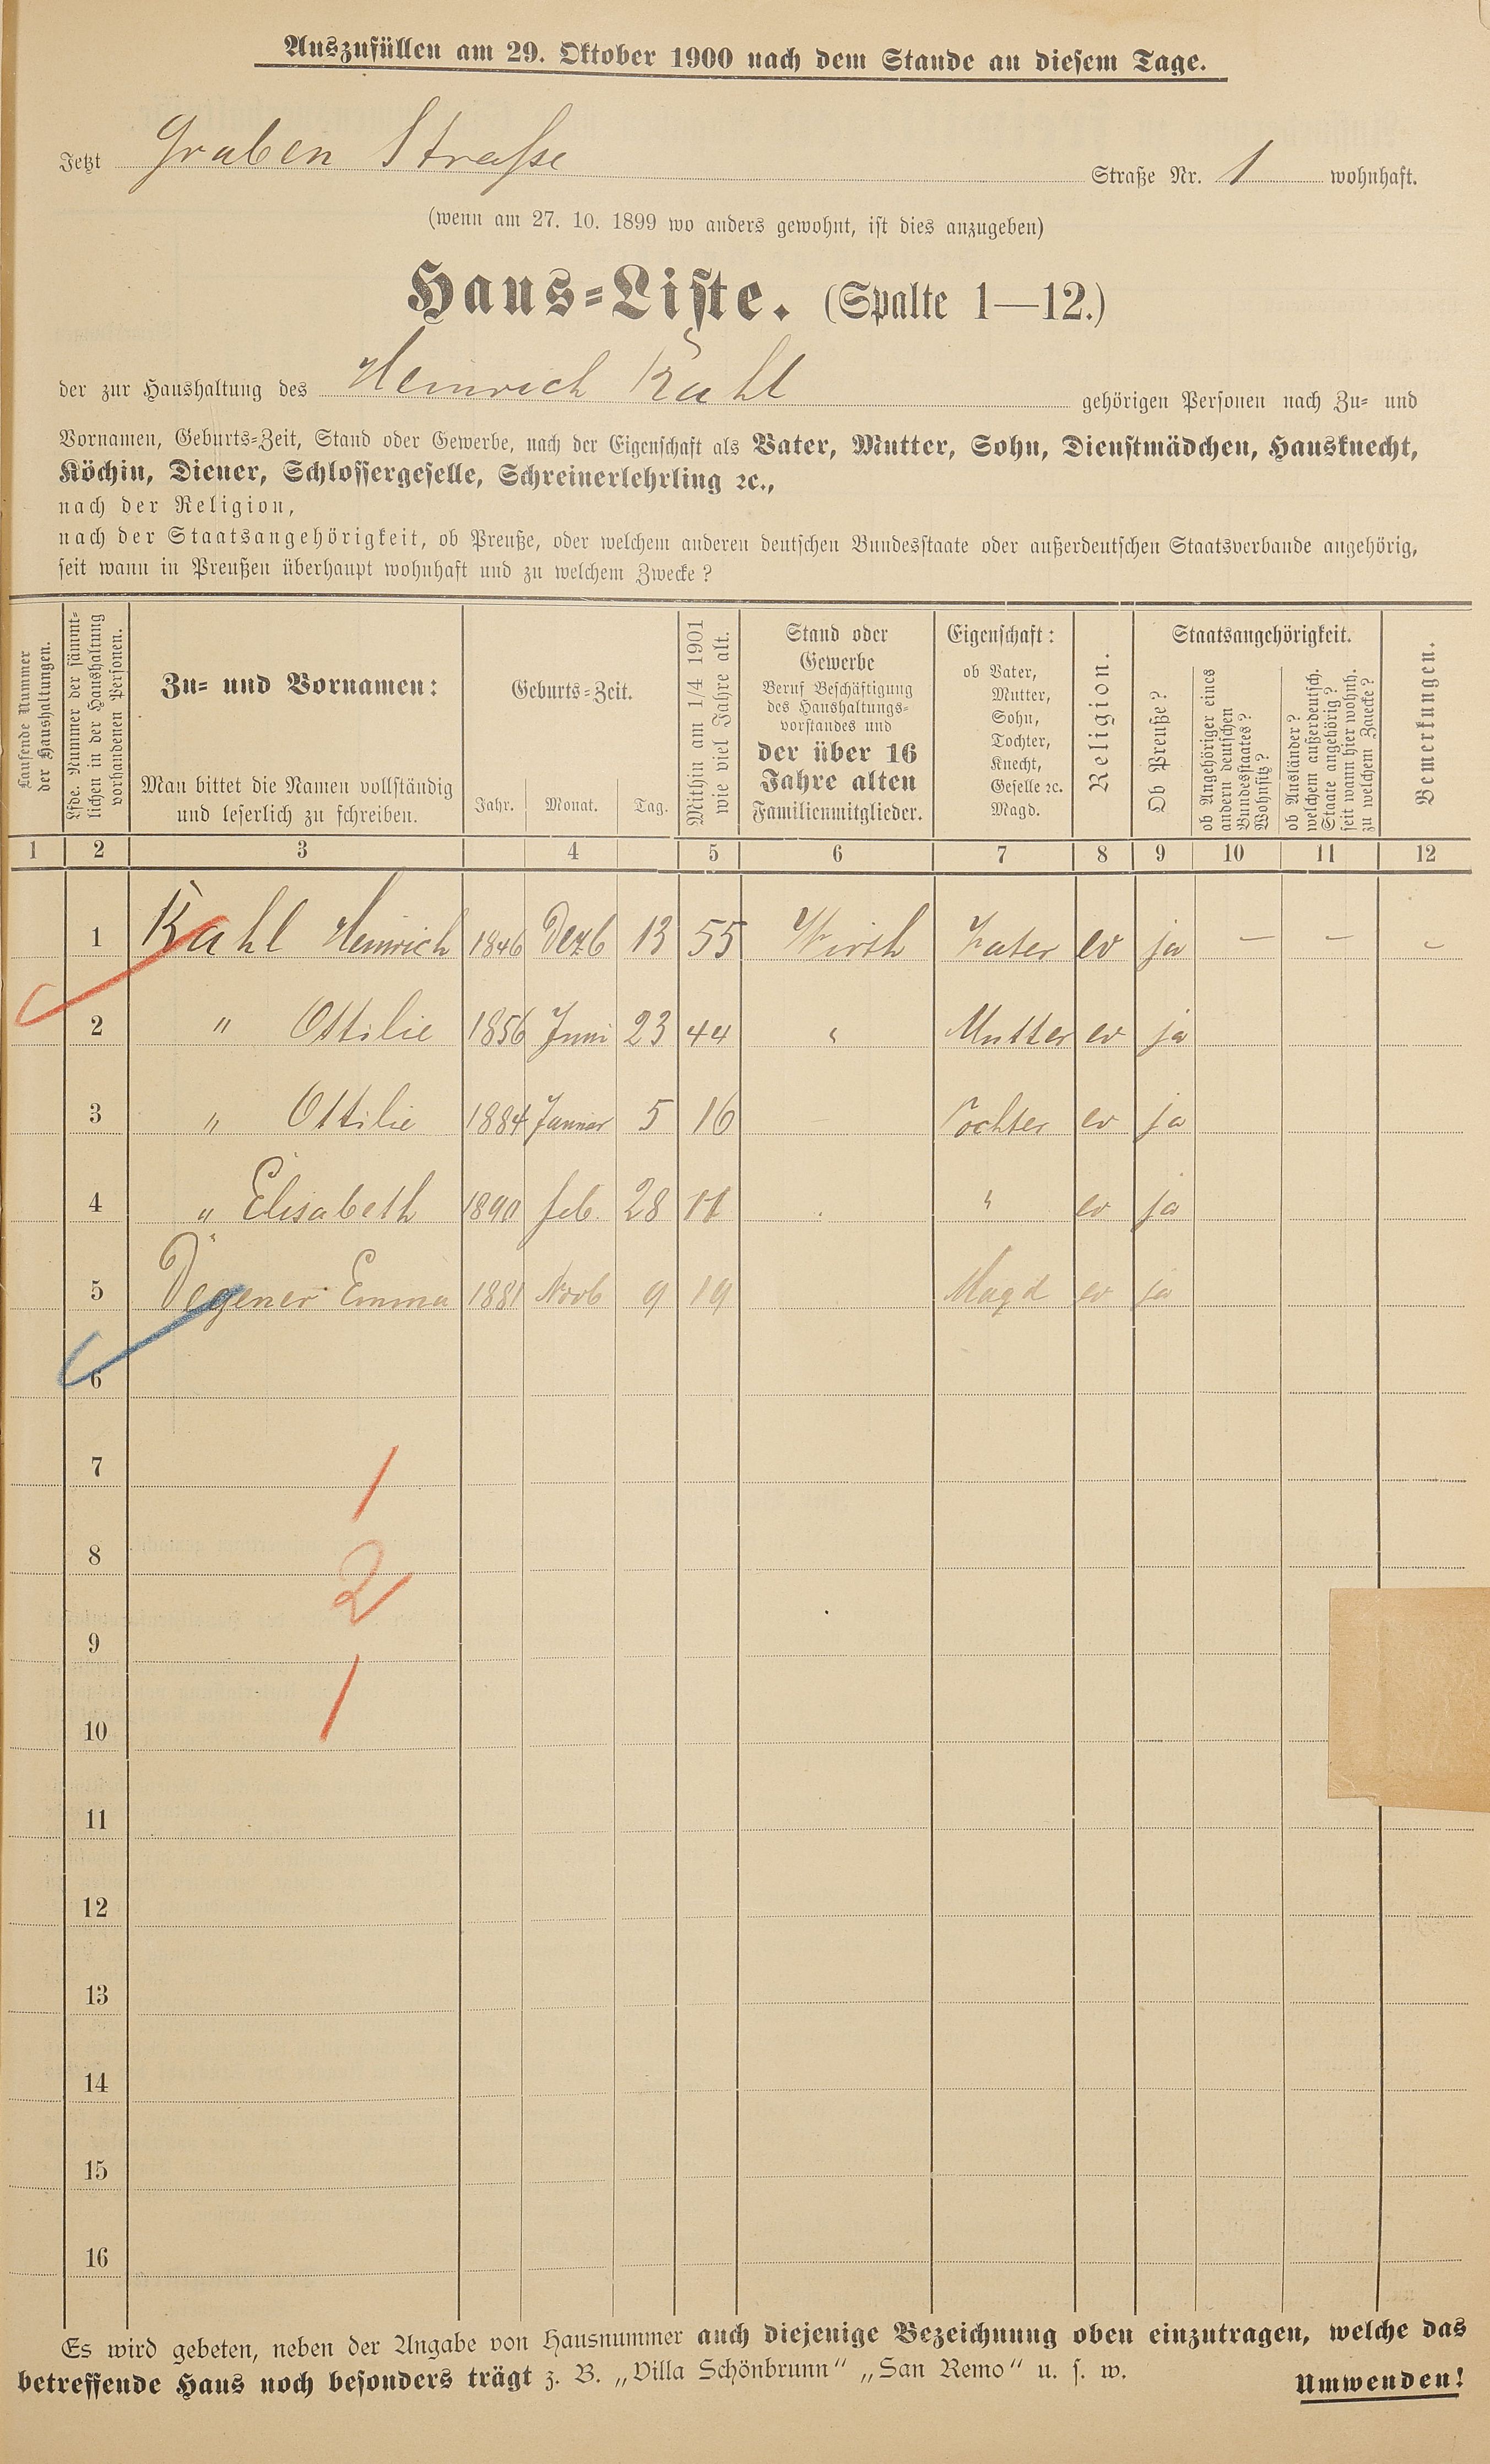 Auszufüllen am 29. Oktober 1900 nach dem Stande an diesem Tage.
Jetzt Graben Straße Straße Nr. 1 wohnhaft.
(wenn am 27. 10. 1899 wo anders gewohnt, ist dies anzugeben)
Haus=Liste. (Spalte 1—12.)
der zur Haushaltung des Heinrich Kahl gehörigen Personen nach Zu= und
Vornamen, Geburts=Zeit, Stand oder Gewerbe, nach der Eigenschaft als Vater, Mutter, Sohn, Dienstmädchen, Hausknecht,
Köchin, Diener, Schlossergeselle, Schreinerlehrling ꝛc.,
nach der Religion,
nach der Staatsangehörigkeit, ob Preuße, oder welchem anderen deutschen Bundesstaate oder außerdeutschen Staatsverbande angehörig,
seit wann in Preußen überhaupt wohnhaft und zu welchem Zwecke?
Laufende Nummer
der Haushaltungen.
Lfde. Nummer der sämmt-
lichen in der Haushaltung
vorhandenen Personen.
Zu= und Vornamen:
Man bittet die Namen vollständig
und leserlich zu schreiben.
Geburts=Zeit.
Jahr. Monat. Tag.
Mithin am 1/4 1901
wie viel Jahre alt.
Stand oder
Gewerbe
Beruf Beschäftigung
des Haushaltungs=
vorstandes und
der über 16
Jahre alten
Familienmitglieder.
Eigenschaft:
ob Vater,
Mutter,
Sohn,
Tochter,
Knecht,
Geselle ꝛc.
Magd.
Religion.
Staatsangehörigkeit.
Ob Preuße?
ob Angehöriger eines
andern deutschen
Bundesstaates?
Wohnsitz?
ob Ausländer?
welchem außerdeutsch.
Staate angehörig?
seit wann hier wohnh.
zu welchem Zwecke?
Bemerkungen.
1 2 3 4 5 6 7 8 9 10 11 12
1 Kahl Heinrich 1846 Dezb 13 55 Wirth Vater ev ja — — –
2 " Ottilie 1856 Juni 23 44 " Mutter ev ja
3 " Ottilie 1884 Januar 5 16 Tochter ev ja
4 " Elisabeth 1890 feb. 28 11 " ev ja
5 Degener Emma 1881 Novb 9 19 Magd ev ja
6
7
1
8
2
9
1
10
11
12
13
14
15
16
Es wird gebeten, neben der Angabe von Hausnummer auch diejenige Bezeichnung oben einzutragen, welche das
betreffende Haus noch besonders trägt z. B. „Villa Schönbrunn" „San Remo" u. s. w.
Umwenden!